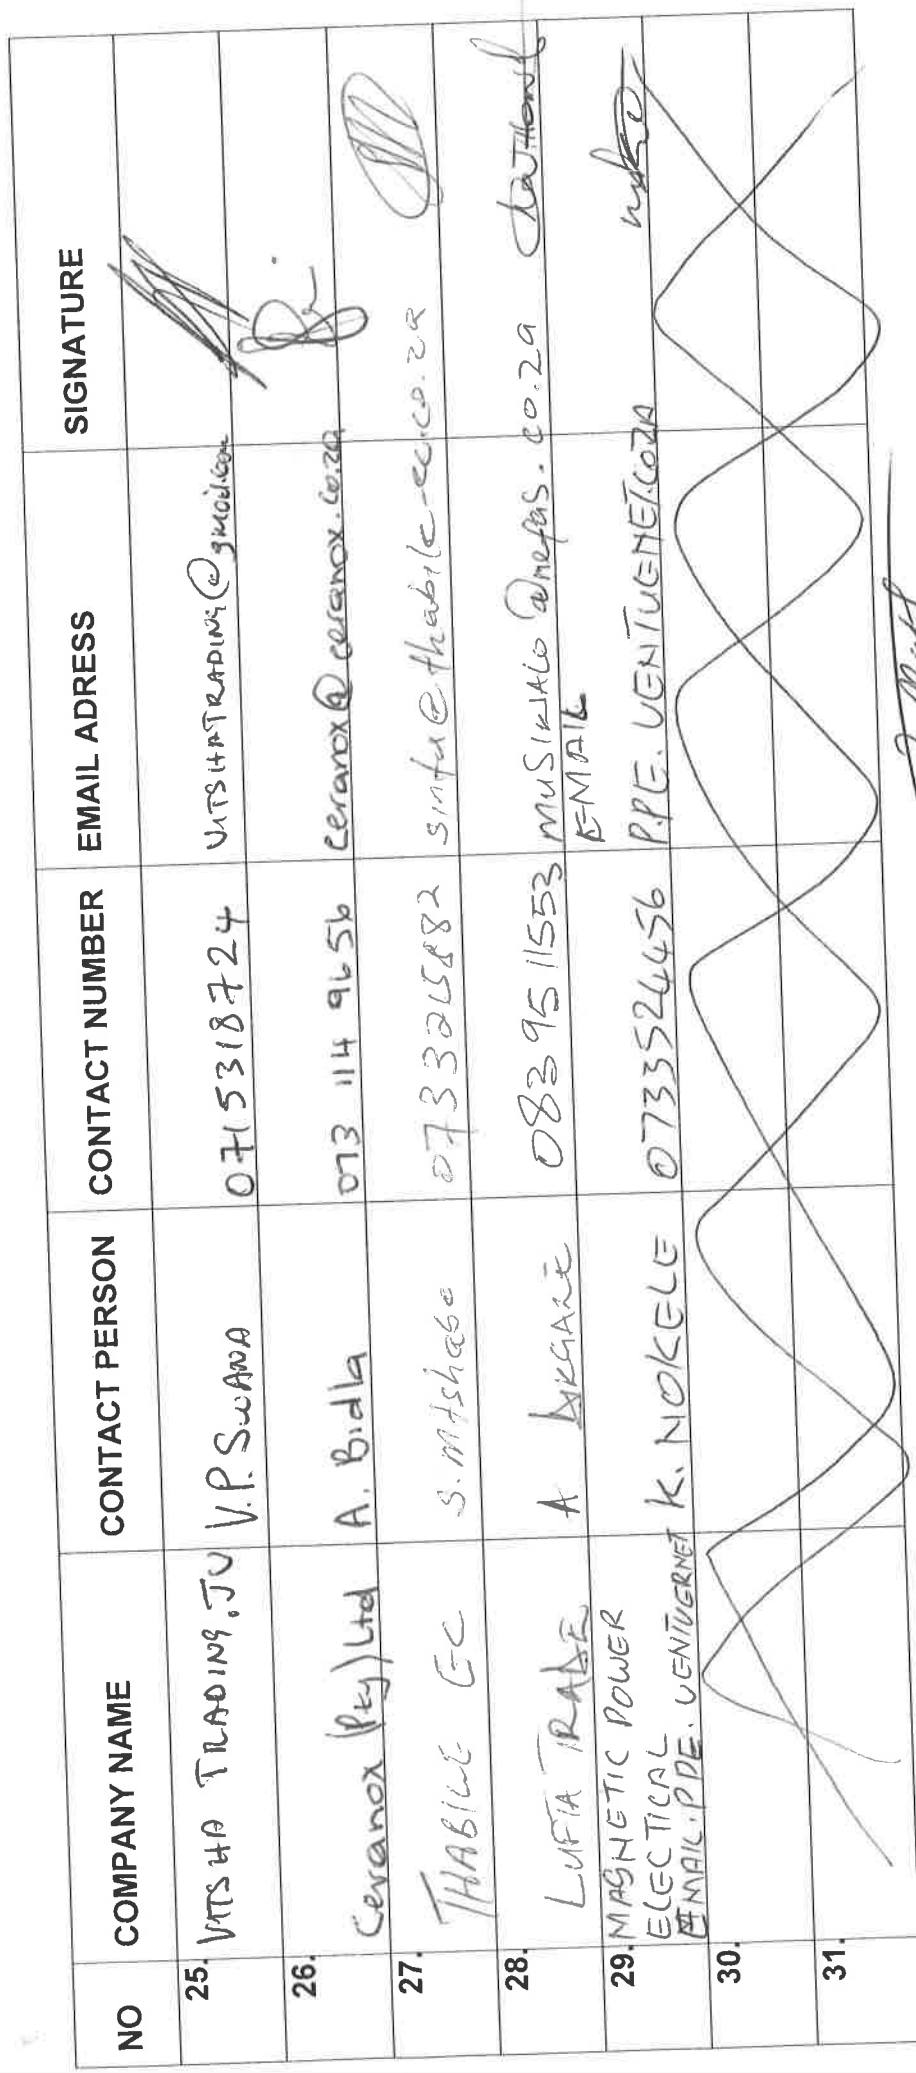 NO COMPANY NAME CONTACT PERSON CONTACT NUMBER EMAIL ADRESS SIGNATURE
25. VITSHA TRADING. JV V.P. SWANA 0715318724 VITSHATRADING@gmail.com
26. Ceranox (Pty) Ltd A. Bidla 073 114 9656 ceranox@ceranox.co.za
27. THABILE EC S. Mtshabe 0733265882 sinfu@thabile-ec.co.za
28. LUFTA TRADE A 0839511553 MUSIKIALO@mefas.co.za
29. MAGNETIC POWER
ELECTICAL K. NOKELE 0733524456 E-MAIL
EMAIL. PPE. VENTUERNET P.PE. VENTUENET.COZA
30.
31.